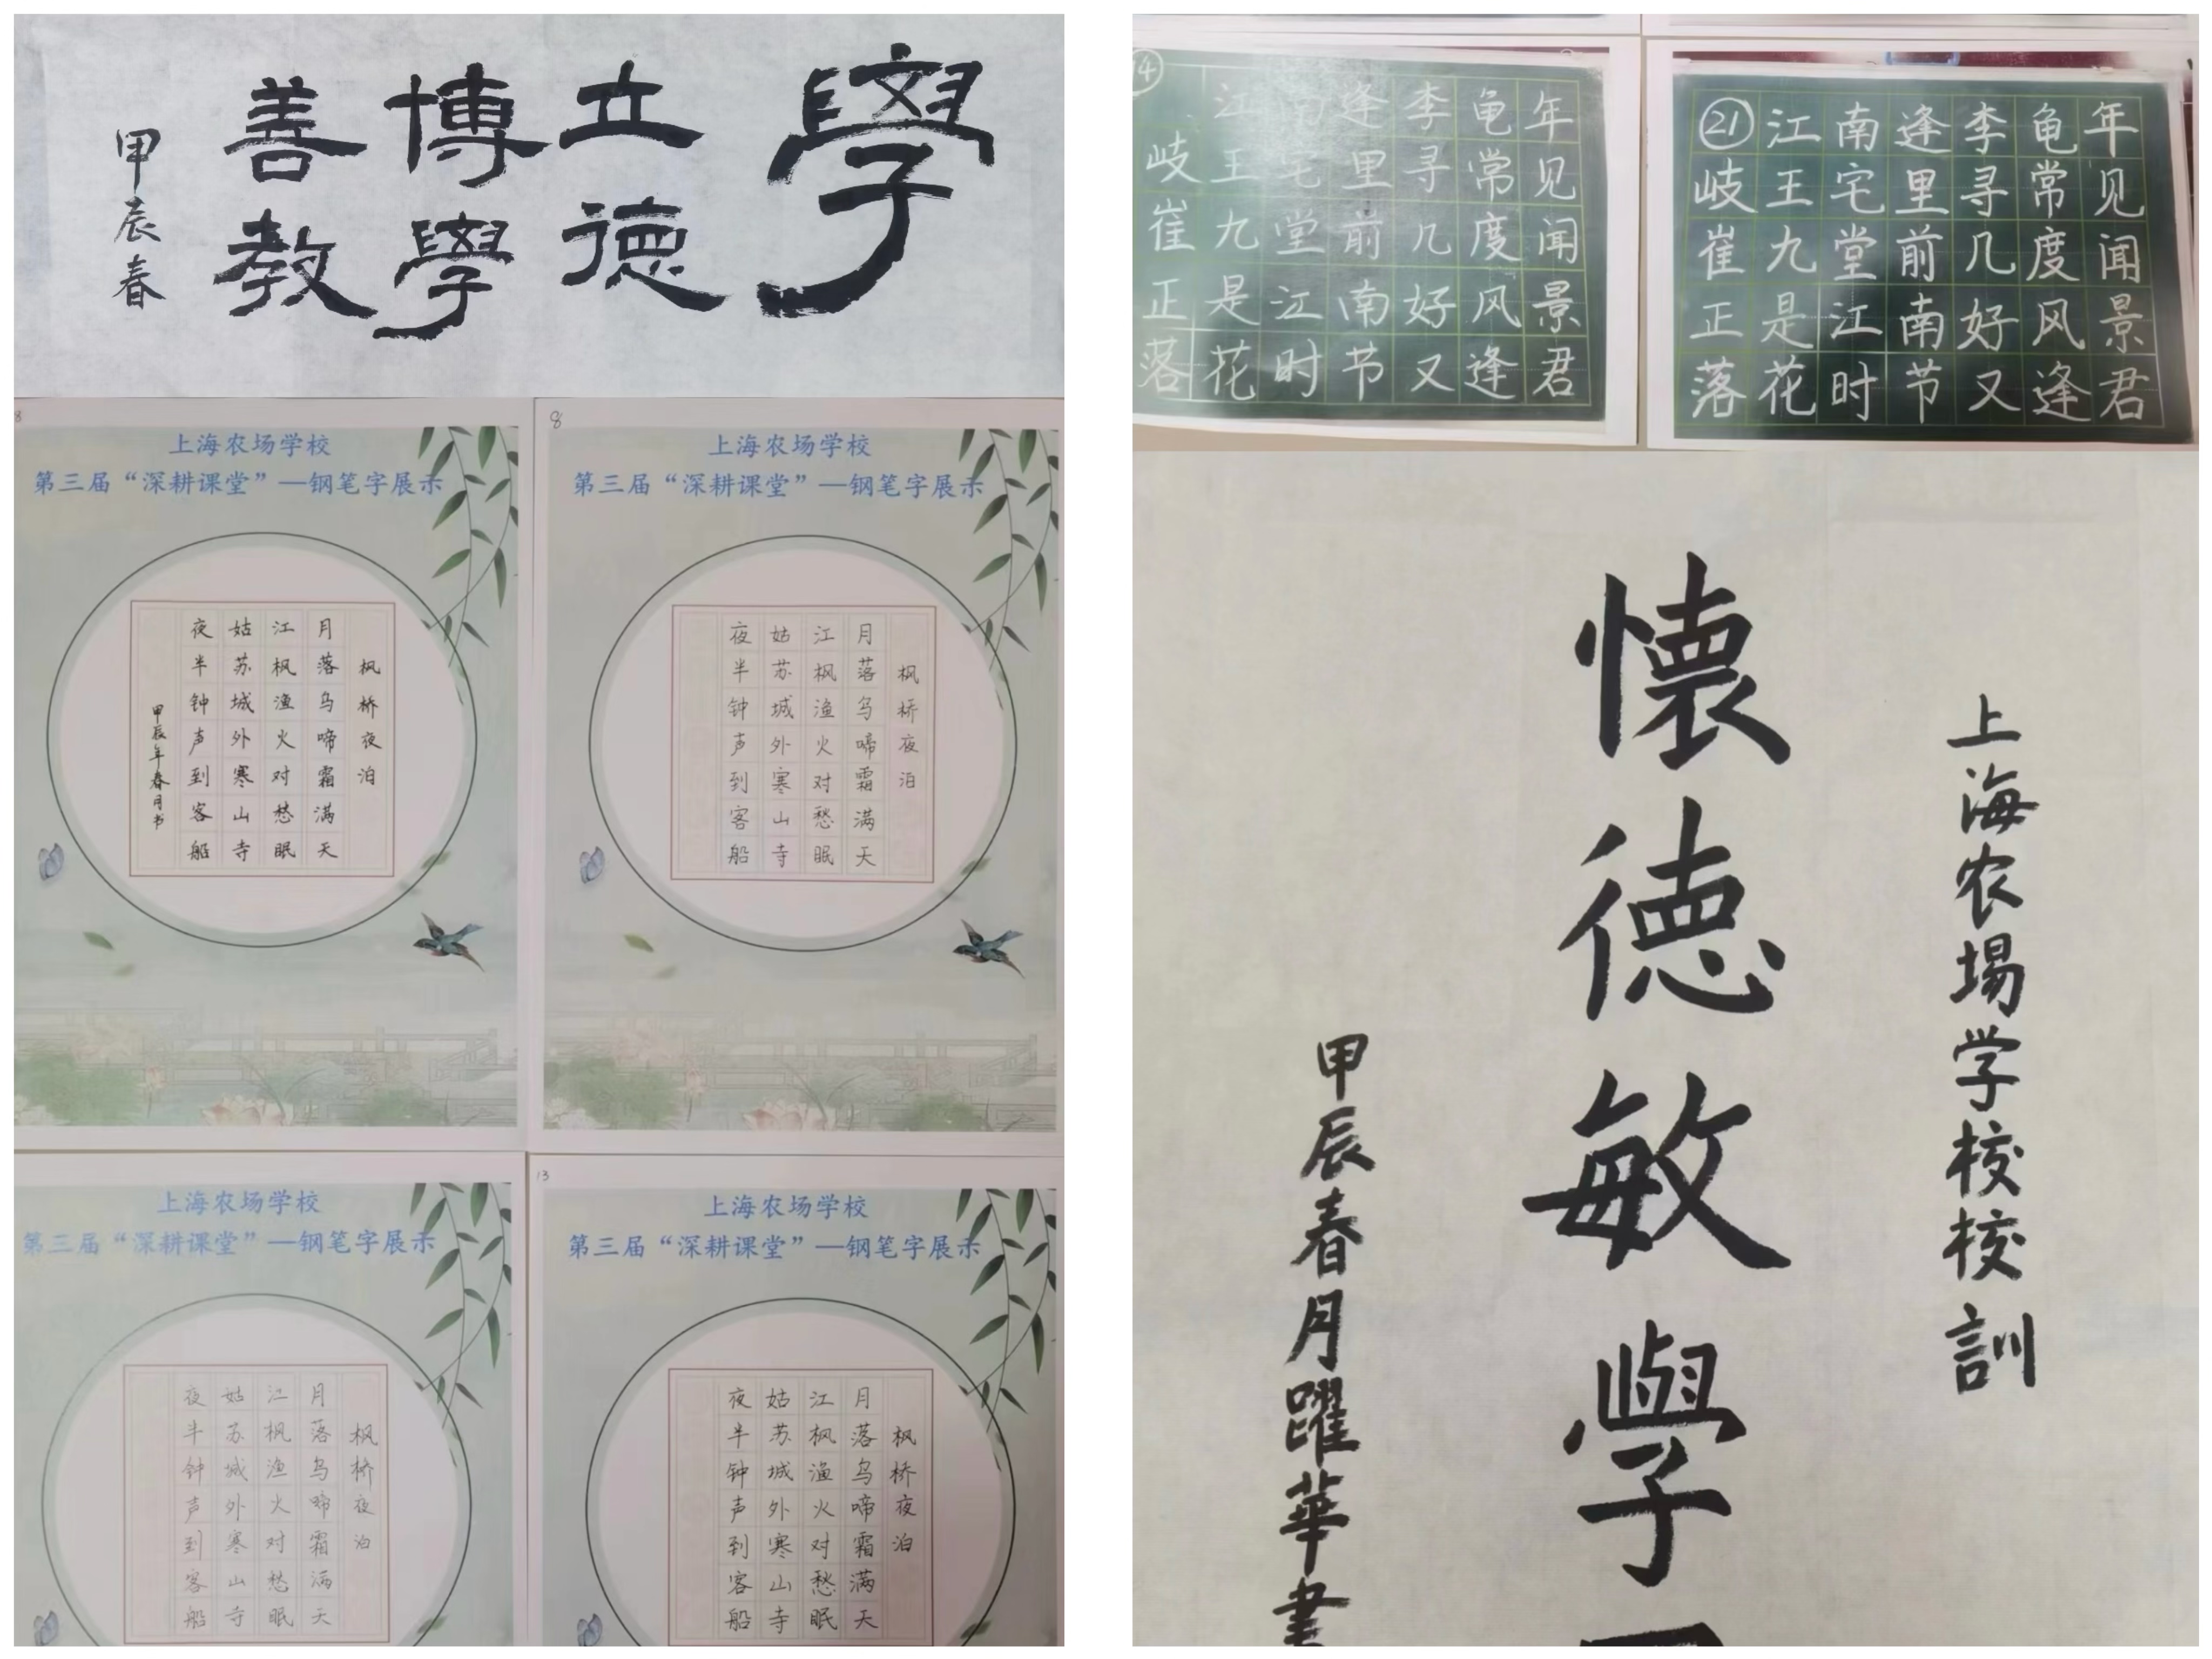 學
立德
博學
善教
甲辰春
8
上海农场学校
第三届“深耕课堂”—钢笔字展示
枫桥夜泊
月落乌啼霜满天
江枫渔火对愁眠
姑苏城外寒山寺
夜半钟声到客船
甲辰年春月书
8
上海农场学校
第三届“深耕课堂”—钢笔字展示
枫桥夜泊
月落乌啼霜满天
江枫渔火对愁眠
姑苏城外寒山寺
夜半钟声到客船
上海农场学校
第三届“深耕课堂”—钢笔字展示
枫桥夜泊
月落乌啼霜满天
江枫渔火对愁眠
姑苏城外寒山寺
夜半钟声到客船
13
上海农场学校
第三届“深耕课堂”—钢笔字展示
枫桥夜泊
月落乌啼霜满天
江枫渔火对愁眠
姑苏城外寒山寺
夜半钟声到客船
14
江南逢李龟年
岐王宅里寻常见
崔九堂前几度闻
正是江南好风景
落花时节又逢君
21 江南逢李龟年
岐王宅里寻常见
崔九堂前几度闻
正是江南好风景
落花时节又逢君
上海农場学校校訓
懷德敏學
甲辰春月躍華書